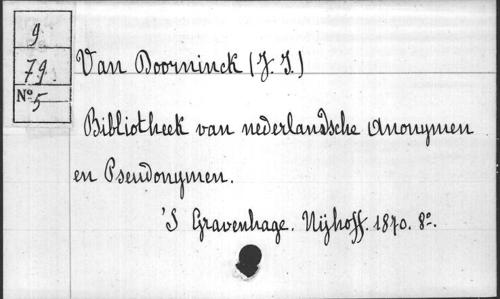 9
79
No 5
Van Doorninck (J. J.)
Bibliotheek van nederlandsche Anonymen
en Pseudonymen.
'S Gravenhage. Nijhoff. 1870. 8o.